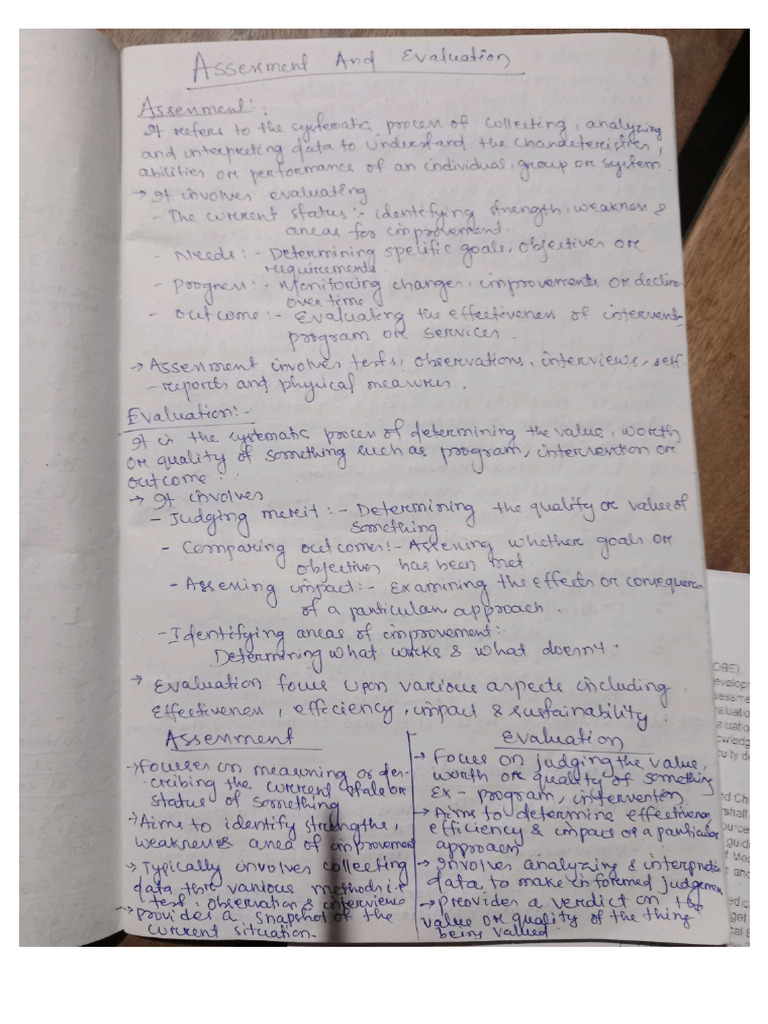 Assessment And Evaluation
Assessment :
It refers to the systematic process of collecting, analyzing
and interpreting data to understand the characteristics,
abilities or performance of an individual, group or system.
→ It involves evaluating
- The current status :- identifying strength, weakness &
areas for improvement.
- Needs :- Determining specific goals, objectives or
requirements.
- Progress :- Monitoring changes, improvements or decline
over time
- Outcome :- Evaluating the effectiveness of intervent
program or services.
→ Assessment involves tests, observations, interviews, self
-reports and physical measures.
Evaluation :-
It is the systematic process of determining the value, worth
or quality of something such as program, intervention or
outcome.
→ It involves
- Judging merit :- Determining the quality or value of
something.
- Comparing outcomes :- Assessing whether goals or
objectives has been met.
- Assessing impact :- Examining the effects or consequence
of a particular approach.
- Identifying areas of improvement :
Determining what works & what doesn't.
→ Evaluation focus upon various aspects including
Effectiveness, efficiency, impact & sustainability.
Assessment
→ Focuses on measuring or des-
cribing the current state or
status of something
→ Aims to identify strengths,
weakness & area of improvement
→ Typically involves collecting
data thro various methods i.e
test, observation & interviews
→ provides a snapshot of the
current situation.
Evaluation
→ Focus on judging the value,
worth or quality of something
Ex - program, intervention.
→ Aims to determine effectiveness
efficiency & impact of a particular
approach
→ Involves analyzing & interpreting
data to make informed judgement
→ Provides a verdict on the
value or quality of the thing
being valued.
OBE)